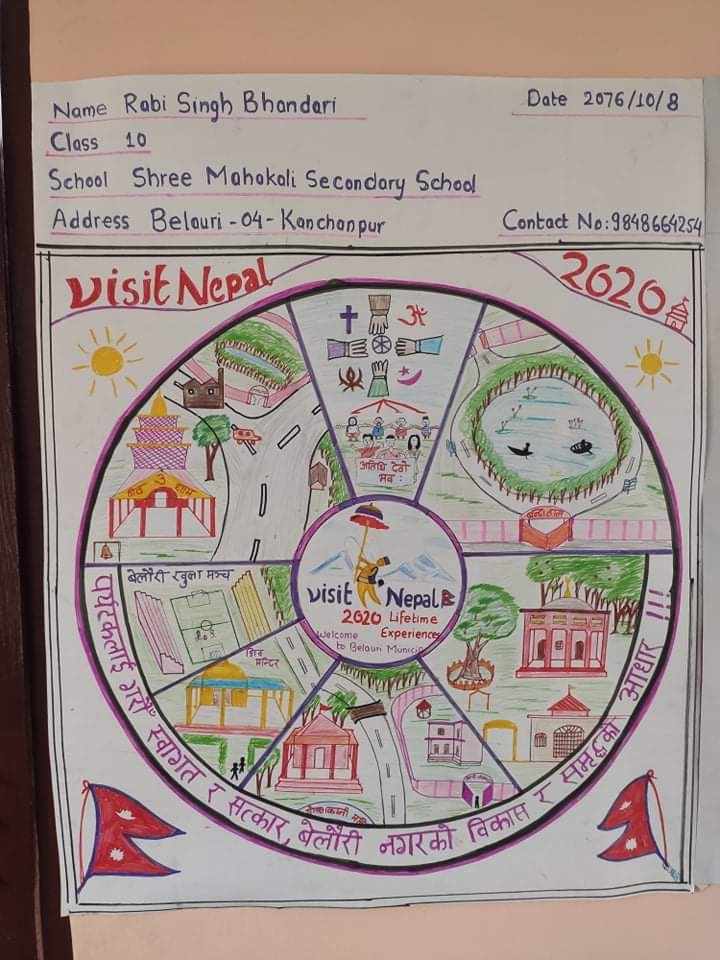 Name Rabi Singh Bhandari
Date 2076/10/8
Class 10
School Shree Mahakali Secondary School
Address Belauri-04-Kanchanpur
Contact No:9848664254
Visit Nepal
2020
अतिथि देवो
भव:
शिव धाम
बेलौरी खुला मञ्च
शिव
मन्दिर
Visit Nepal
2020 Lifetime
Experiences
Welcome
to Belauri Municip
पर्यटकलाई गरौँ स्वागत र सत्कार, बेलौरी नगरको विकास र समृद्धिको आधार !!!